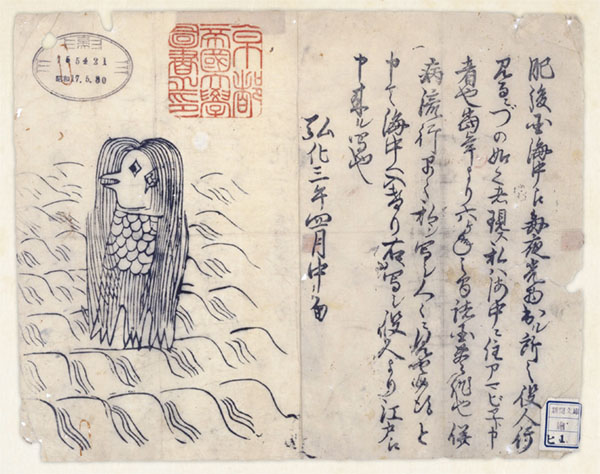 肥後国海中え毎夜光物出ル所之役人行
見るニづの如く者現ス私ハ海中ニ住アマビヱト申
者也当年より六ヶ年之間諸国豊作也併
病流行早々私シ写シ人々ニ見セ候得と
申て海中へ入けり右写シ役人より江戸え
申来ル写也
弘化三年四月中旬
京都
帝國大學
圖書之印
165421
昭和17.5.30